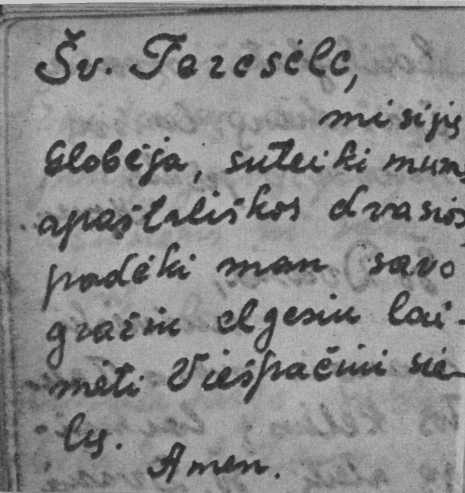 Šv. Teresėle,
misijų
Globėja, suteiki mums
apaštališkos dvasios,
padėki man savo
gražiu elgesiu lai-
mėti Viešpačiui sie-
lų.
Amen.